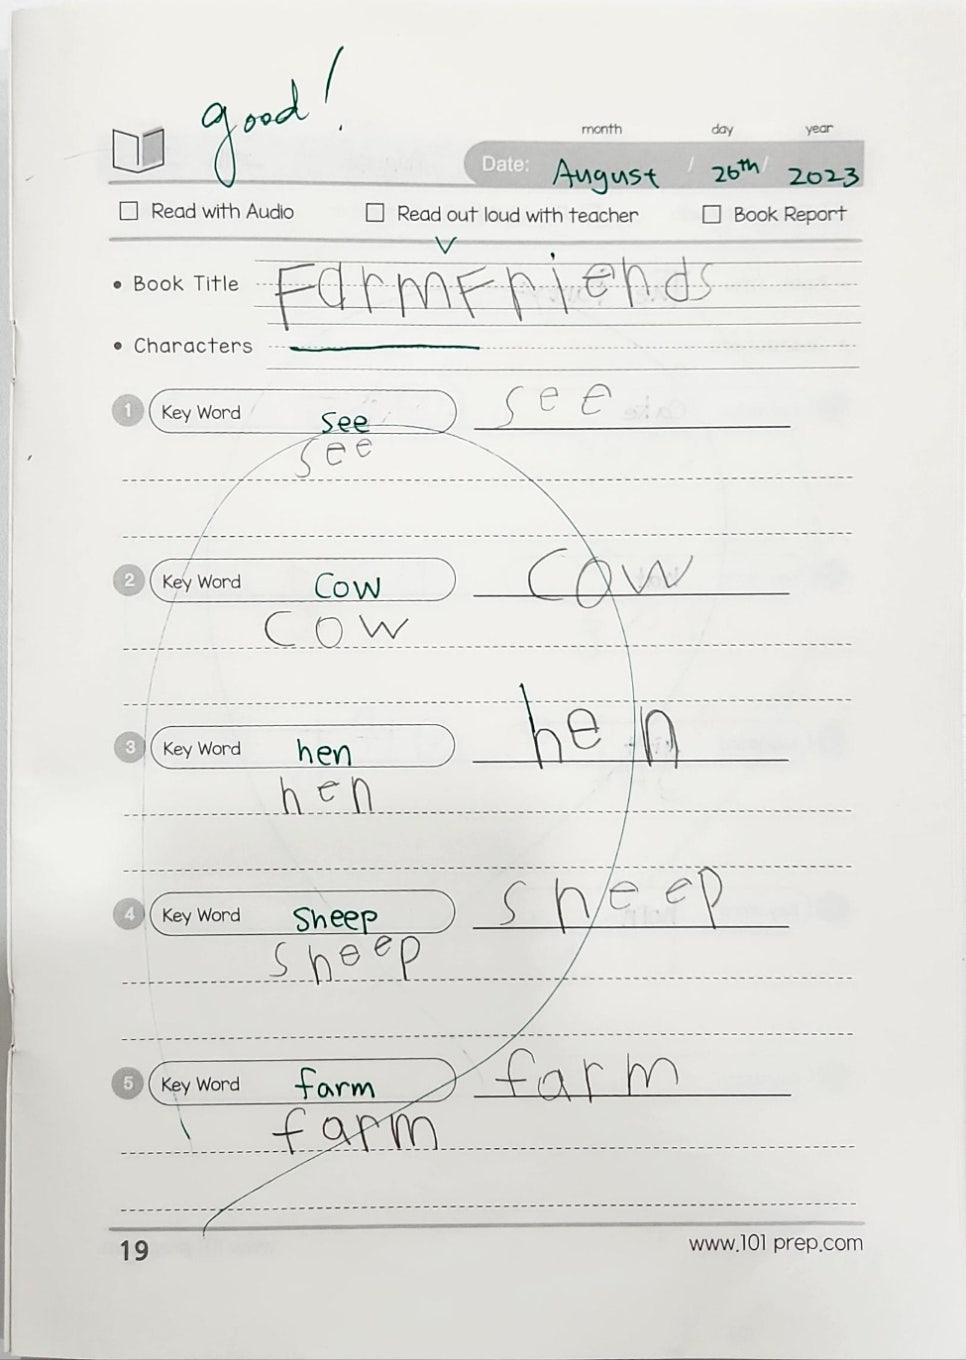 good!
month day year
Date: August / 26th / 2023
Read with Audio Read out loud with teacher Book Report
• Book Title FarmFriends
• Characters
1 Key Word see see
see
2 Key Word Cow Cow
cow
3 Key Word hen hen
hen
4 Key Word Sheep sheep
sheep
5 Key Word farm farm
farm
19 www.101 prep.com